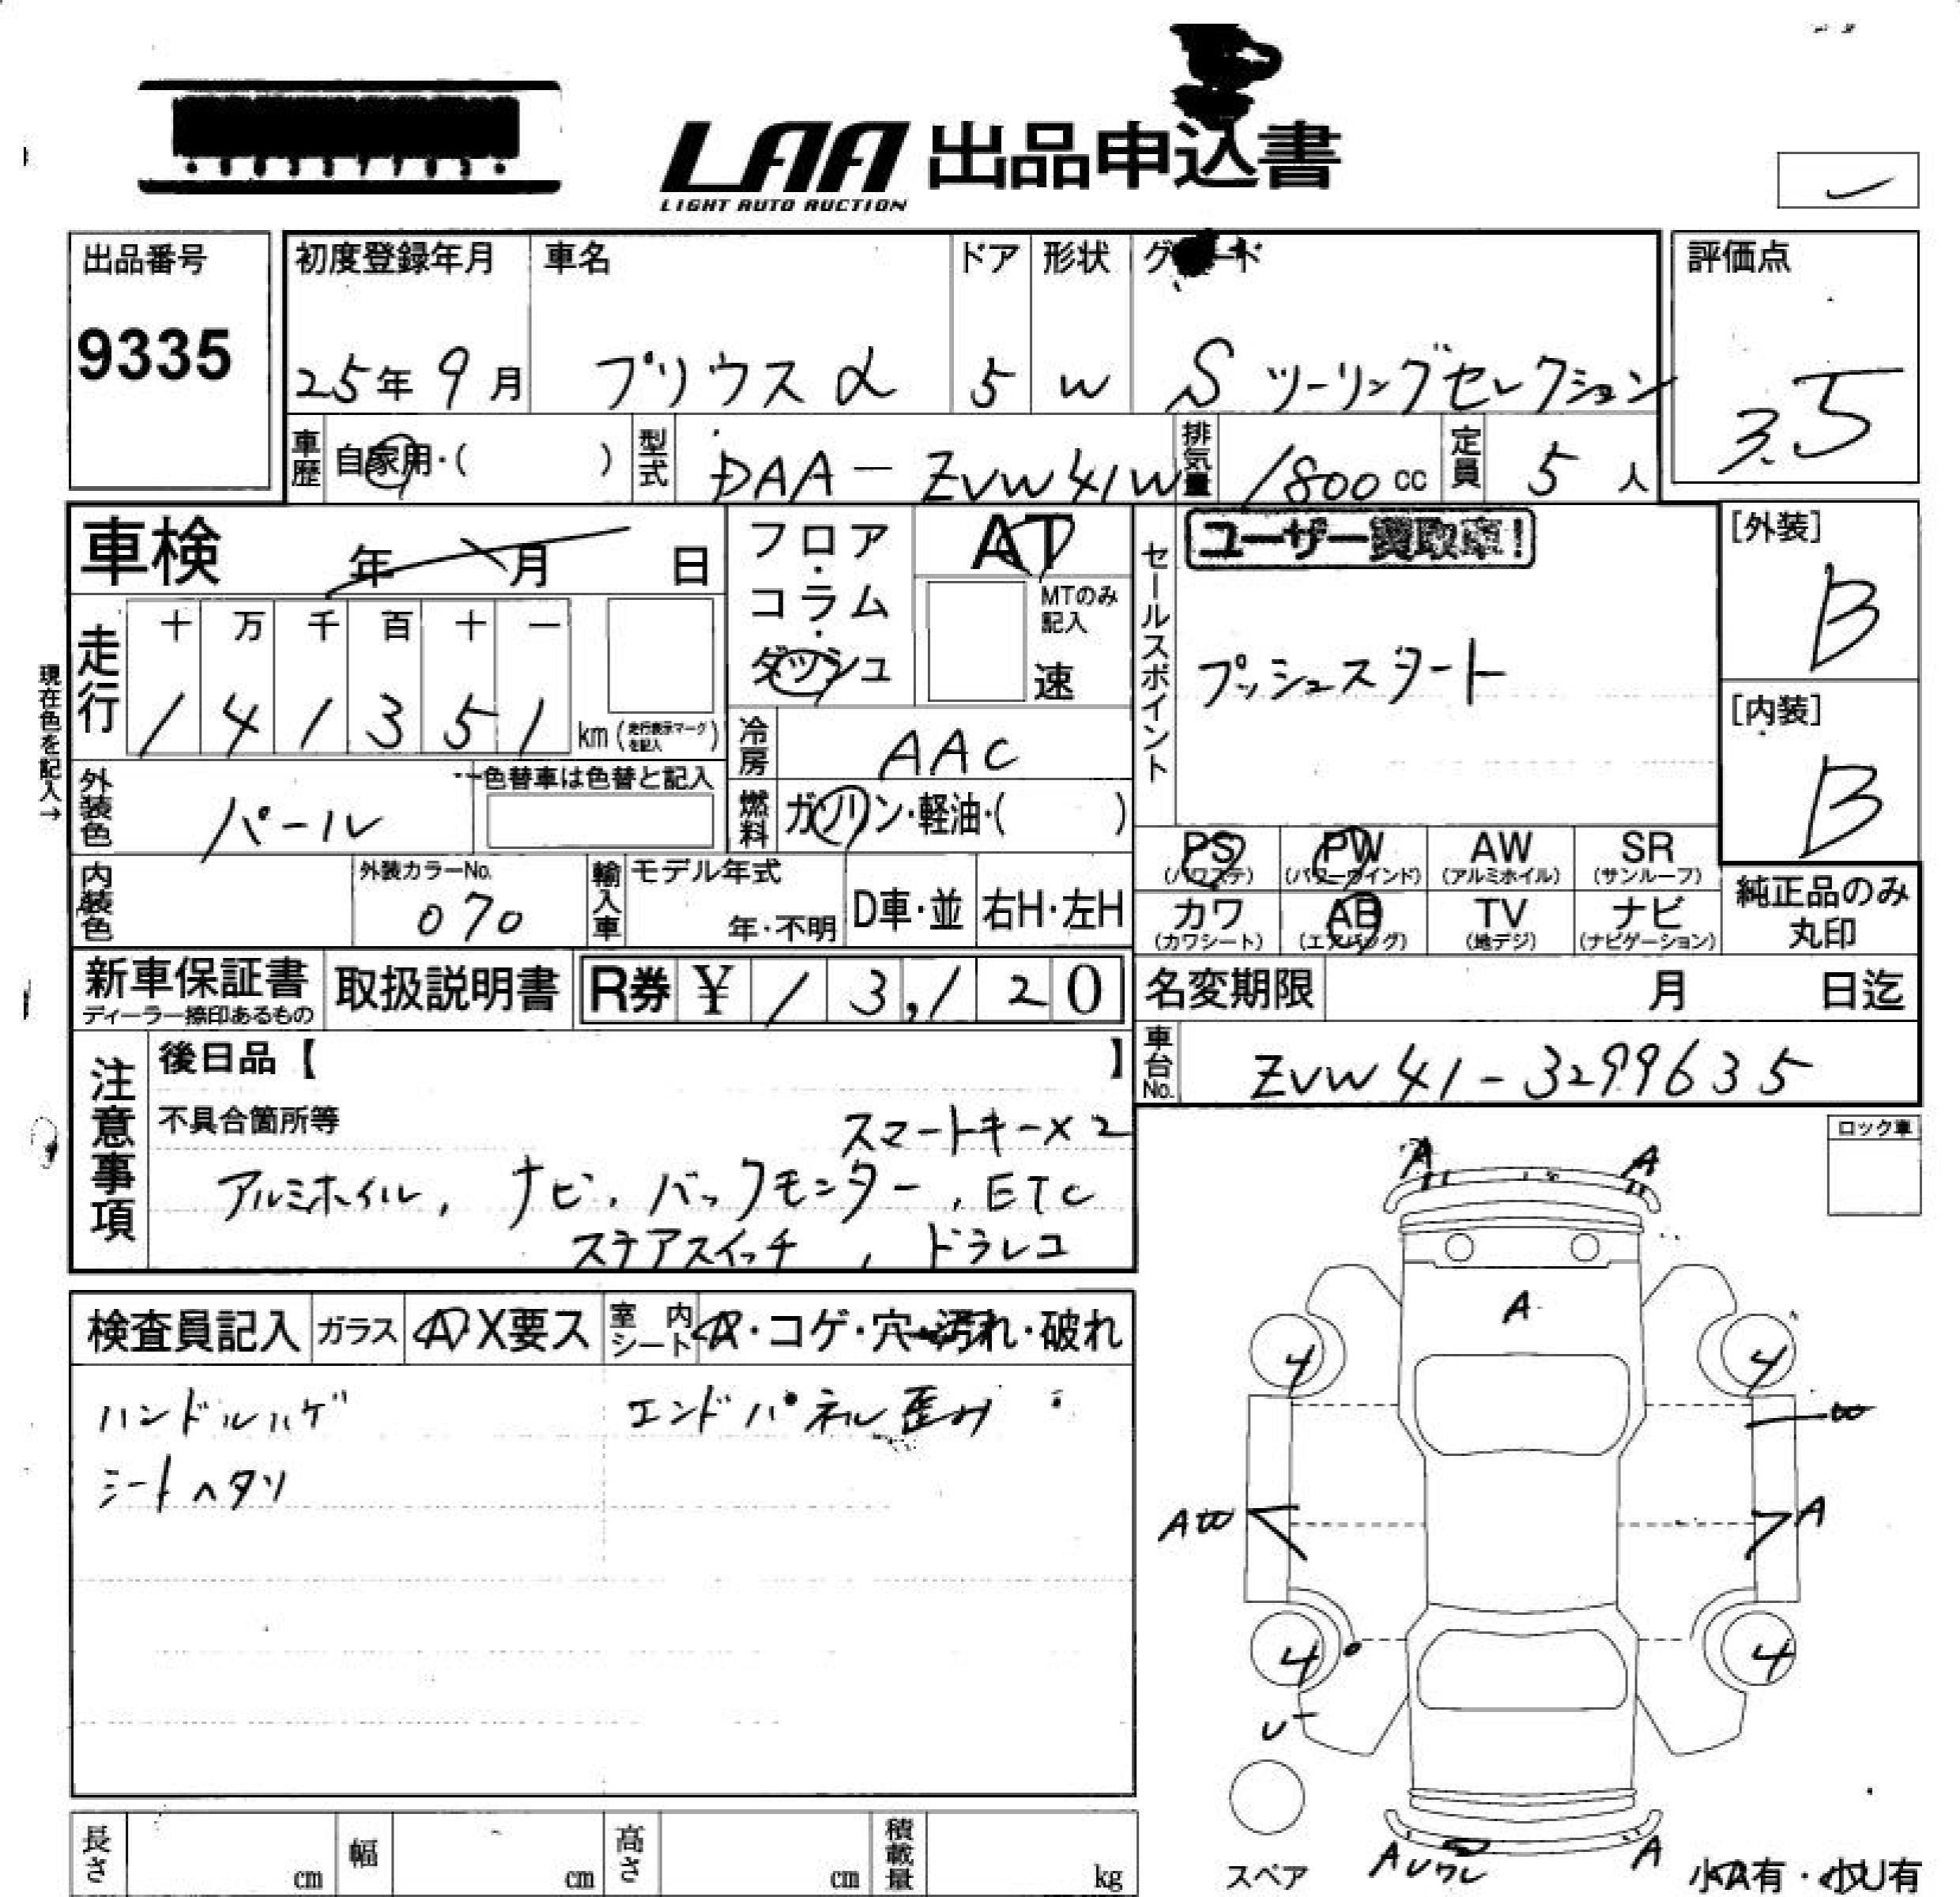 LAA 出品申込書
LIGHT AUTO AUCTION
出品番号
9335
初度登録年月
25年 9月
車名
プリウスα
ドア
5
形状
W
Sツーリングセレクション
評価点
3.5
車歴
自家用・( )
型式
DAA-ZVW41W
排気量
1800 cc
定員
5 人
車検 年 月 日
フロア・コラム・ダッシュ
AT
MTのみ記入
速
セールスポイント
ユーザー買取車!
プッシュスタート
[外装]
B
[内装]
B
現在色を記入→
走行
十 万 千 百 十 一
1 4 1 3 5 1 km (走行表示マークを記入)
冷房
AAC
外装色
パール
色替車は色替と記入
燃料
ガソリン・軽油・( )
PS (パワステ)
PW (パワーウインド)
AW (アルミホイル)
SR (サンルーフ)
カワ (カワシート)
AB (エアバッグ)
TV (地デジ)
ナビ (ナビゲーション)
純正品のみ丸印
内装色
外装カラーNo.
070
輸入車
モデル年式
年・不明
D車・並
右H・左H
新車保証書
ディーラー捺印あるもの
取扱説明書
R券 ¥ 1 3,1 2 0
名変期限 月 日迄
車台No.
ZVW41-3299635
注意事項
後日品【 】
不具合箇所等
スマートキー×2
アルミホイル, ナビ, バックモニター, ETC
ステアスイッチ, ドラレコ
ロック車
検査員記入
ガラス
A X要ス
室内シート
A・コゲ・穴・汚れ・破れ
ハンドルハゲ エンドパネル歪み
シートヘタリ
A A
A
4 4
W
AW A
4 4
U
スペア
A A
小A有・小U有
長さ cm
幅 cm
高さ cm
積載量 kg